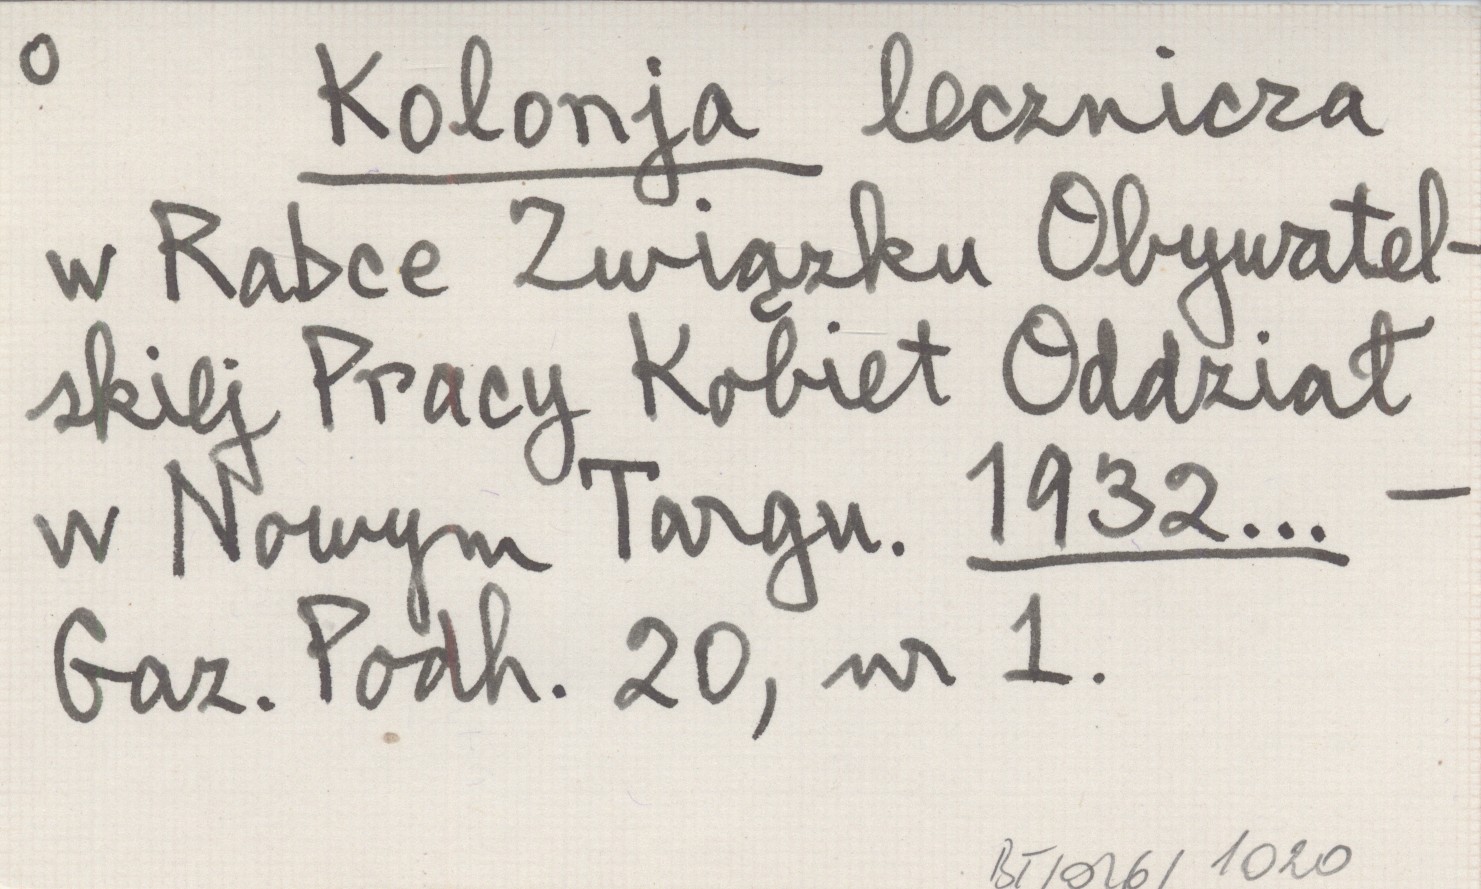 o Kolonja lecznicza
w Rabce Związku Obywatel-
skiej Pracy Kobiet Oddział
w Nowym Targu. 1932... —
Gaz. Podh. 20, nr 1.
1020